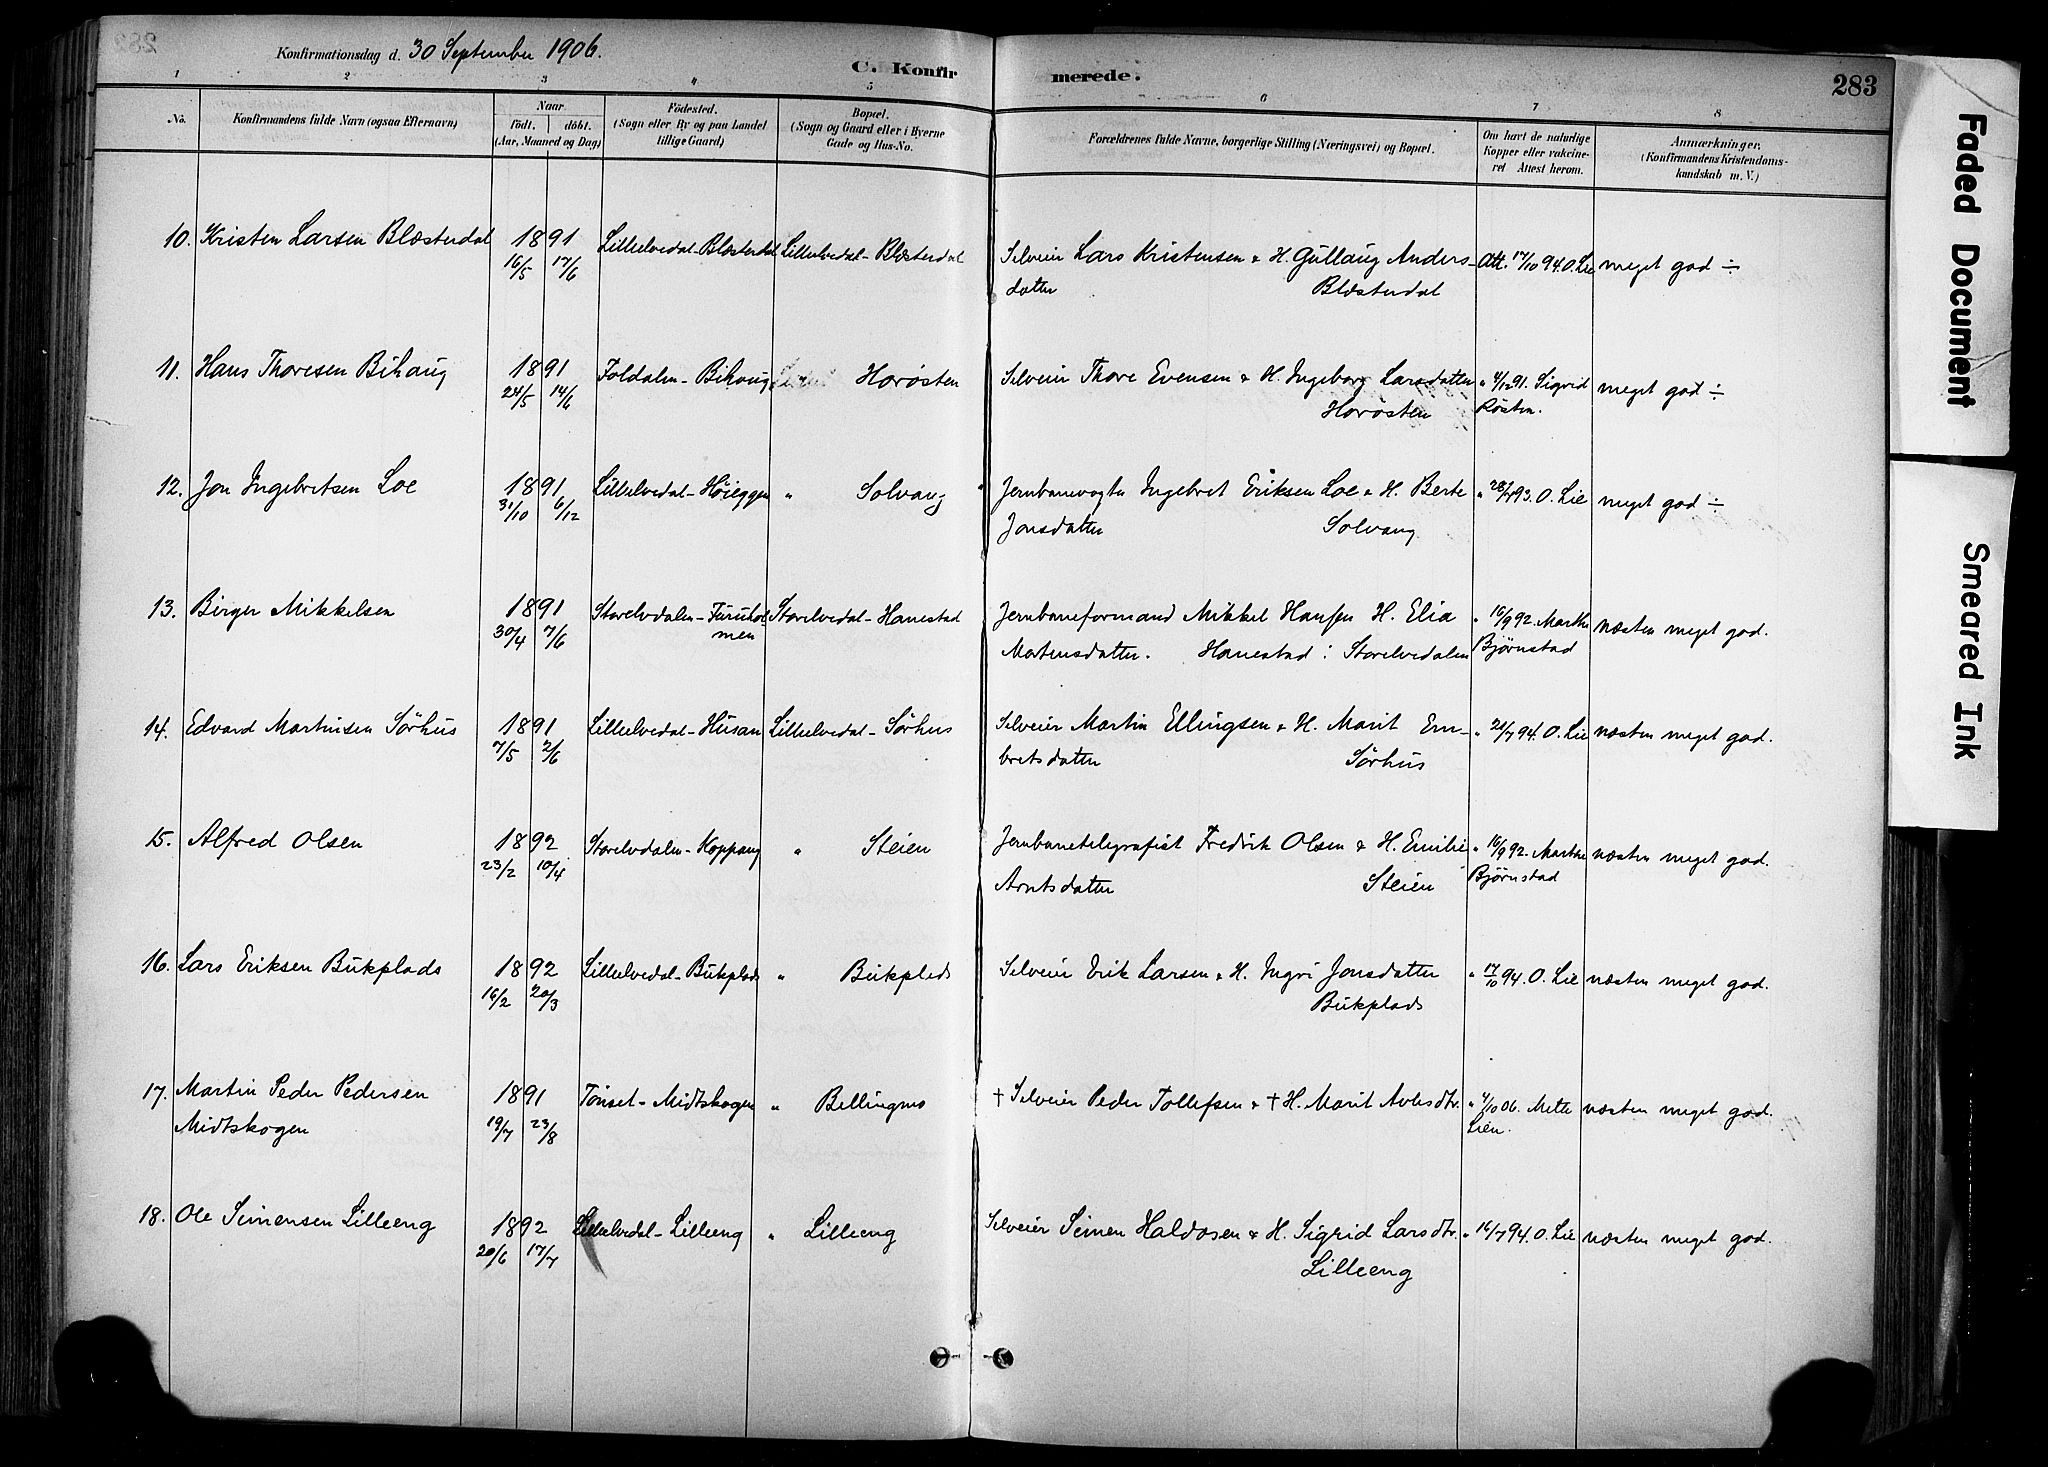 Konfirmationsdag d. 30 September 1906.
C. Konfir merede.
283
1 2 3 4 5 6 7 8
No.
Konfirmandens fulde Navn (ogsaa Efternavn)
Naar
födt. döbt.
(Aar, Maaned og Dag)
Födested.
(Sogn eller By og paa Landet
tillige Gaard)
Bopæl.
(Sogn og Gaard eller i Byerne
Gade og Hus-No.
Forældrenes fulde Navne, borgerlige Stilling (Næringsvei) og Bopæl.
Om havt de naturlige
Kopper eller vakcine-
ret Attest herom.
Anmærkninger.
(Konfirmandens Kristendoms-
kundskab m. V.)
10. Kristen Larsen Blæsterdal 1891 Lilleelvedal-Blæsterdal Lilleelvedal-Blæsterdal Selveier Lars Kristensen & H. Gullaug Anders- Att. 17/10 94. O. Lie meget god ÷
16/5 17/6 datter Blæsterdal
11. Hans Thoresen Bihaug 1891 Foldalen-Bihaug Horøsten Selveier Thore Evensen & H. Ingeborg Larsdatter " 4/12 91. Sigrid meget god ÷
24/5 14/6 Horøsten Røsten.
12. Jon Ingebretsen Loe 1891 Lilleelvedal-Høieggen " Solvang Jernbanevogter Ingebret Eriksen Loe & H. Berte " 28/7 93. O. Lie meget god ÷
31/10 6/12 Jonsdatter Solvang
13. Birger Mikkelsen 1891 Storelvdalen-Furuhol- Storelvedal-Hanestad Jernbaneformand Mikkel Hansen H. Elia " 16/9 92. Marthe næsten meget god.
30/4 7/6 men Martensdatter. Hanestad i Storelvedalen Bjørnstad
14. Edvard Martinsen Sörhus 1891 Lilleelvedal-Husan Lilleelvedal-Sørhus Selveier Martin Ellingsen & H. Marit Em- " 21/7 94. O. Lie næsten meget god.
7/5 2/6 bretsdatter Sørhus
15. Alfred Olsen 1892 Storelvdalen-Koppang " Steien Jernbanetelegrafist Fredrik Olsen & H. Emilie " 16/9 92. Marthe næsten meget god.
23/2 10/4 Arntsdatter Steien Bjørnstad
16. Lars Eriksen Bukplads 1892 Lilleelvedal-Bukplads " Bukplads Selveier Erik Larsen & H. Ingri Jonsdatter " 17/10 94. O. Lie næsten meget god.
16/2 20/3 Bukplads
17. Martin Peder Pedersen 1891 Tönset-Midtskogen " Bellingmo † Selveier Peder Tollefsen & † H. Marit Avlesdtr. " 4/10 06. Mette næsten meget god.
Midtskogen 19/7 23/8 Lien.
18. Ole Simensen Lilleeng 1892 Lilleelvedal-Lilleeng " Lilleeng Selveier Simen Haldosen & H. Sigrid Larsdtr. " 16/7 94. O. Lie næsten meget god.
20/6 17/7 Lilleeng
Faded Document
Smeared Ink